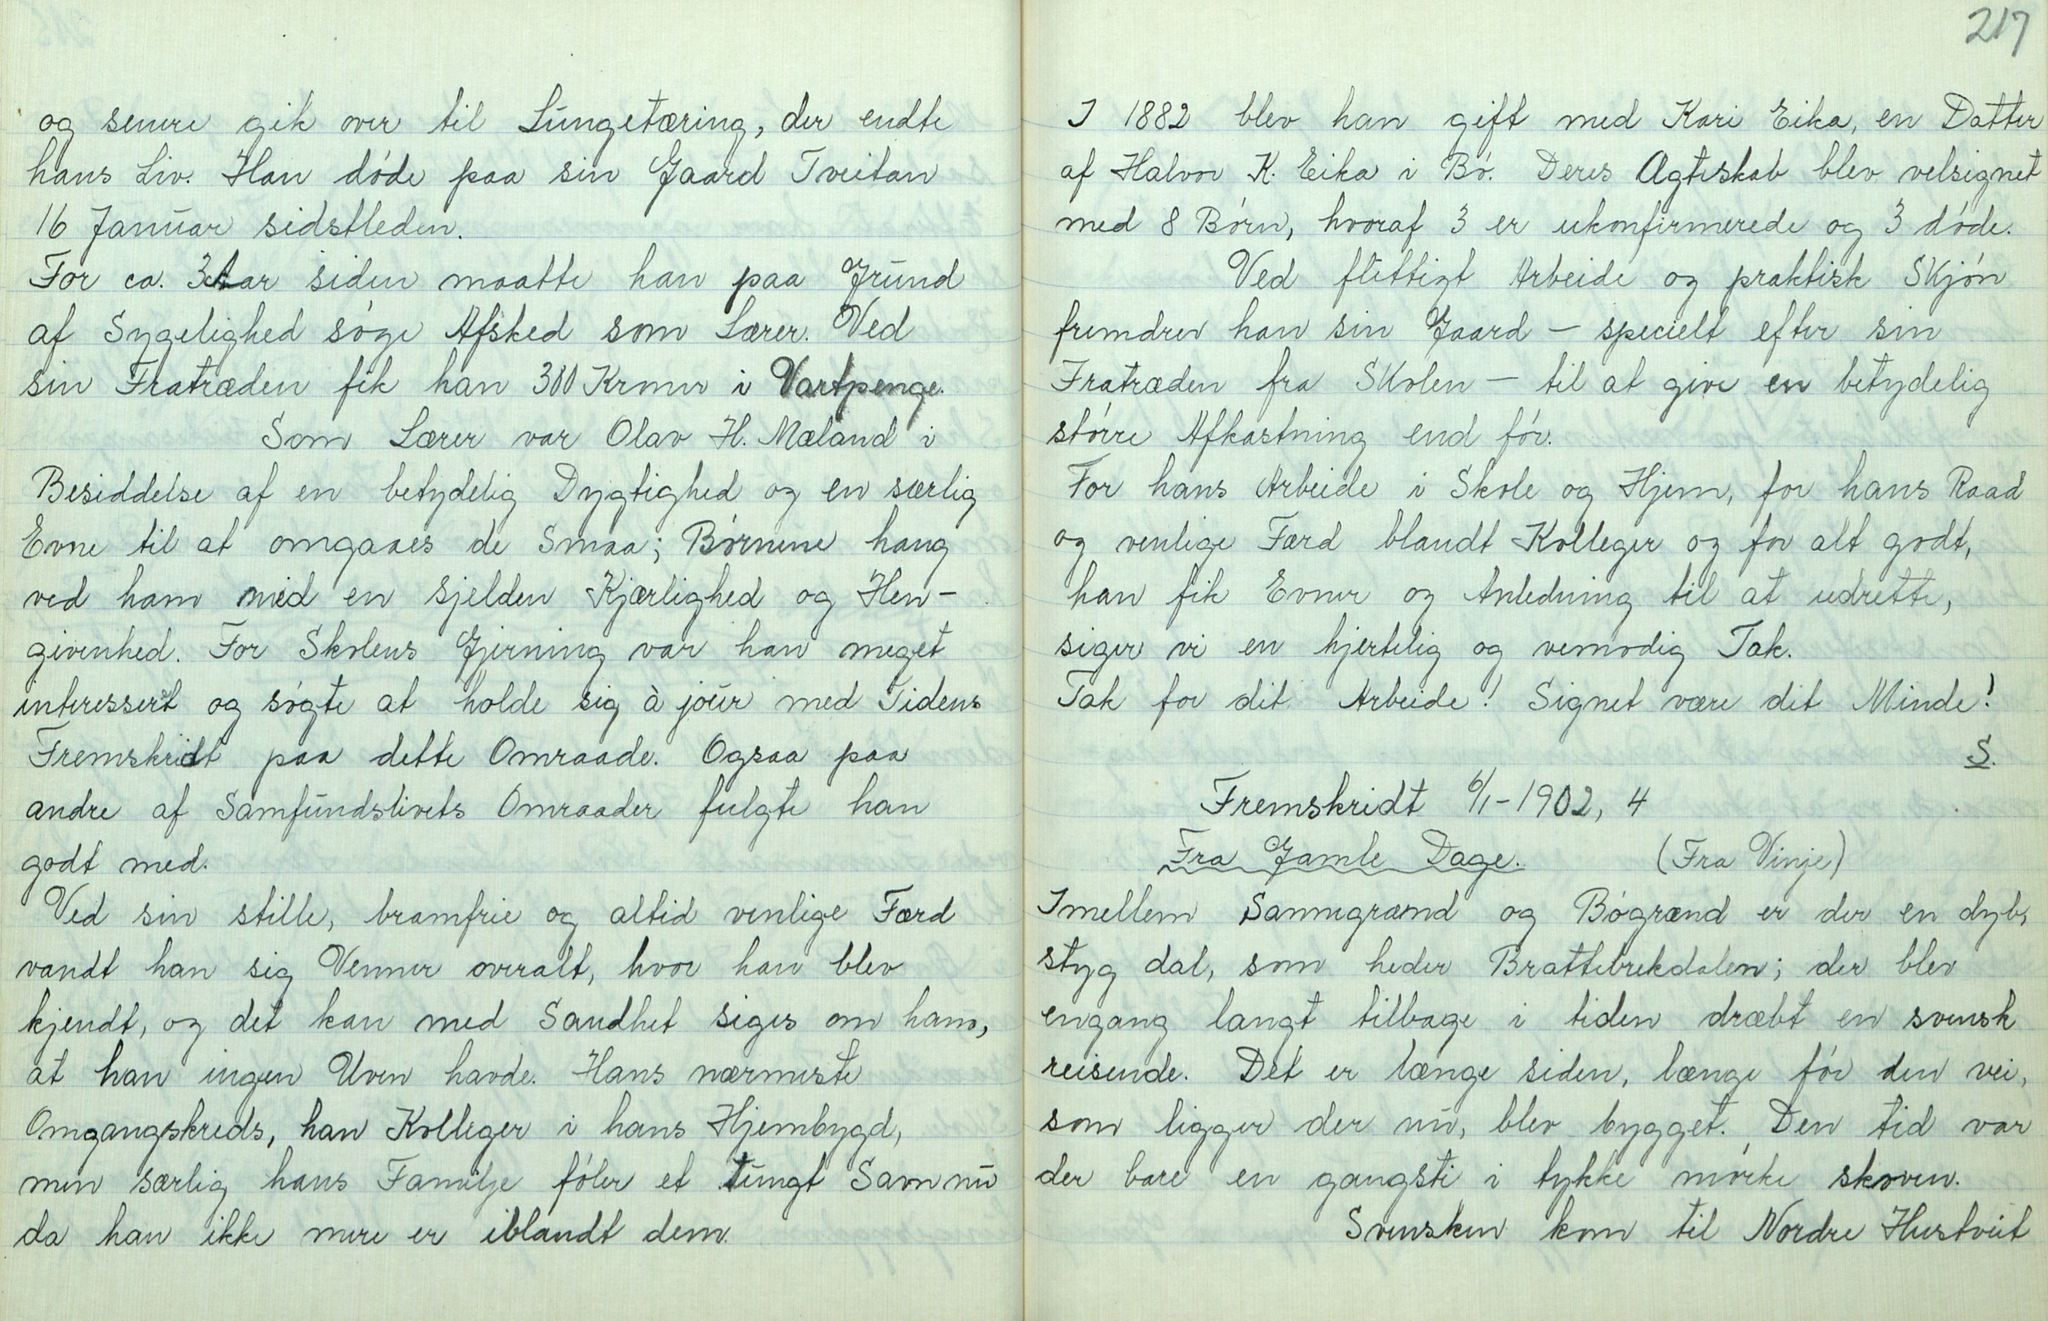 og senere gik over til Lungetæring, der endte
hans Liv. Han døde paa sin Gaard Tveitan
16 Januar sidstleden.
For ca. 3 Aar siden maatte han paa Grund
af Sygelighed søge Afsked som Lærer. Ved
sin Fratræden fik han 300 Kroner i Vartpenge.
Som Lærer var Olav H. Mæland i
Besiddelse af en betydelig Dygtighed og en særlig
Evne til at omgaaes de Smaa; Børnene hang
ved ham med en sjelden Kjærlighed og Hen-
givenhed. For Skolens Gjerning var han meget
interessert og søgte at holde sig à jour med Tidens
Fremskridt paa dette Omraade. Ogsaa paa
andre af Samfundslivets Omraader fulgte han
godt med.
Ved sin stille, bramfrie og altid venlige Færd
vandt han sig Venner overalt, hvor han blev
kjendt, og det kan med Sandhet siges om ham,
at han ingen Uven havde. Hans nærmeste
Omgangskreds, han Kolleger i hans Hjembygd,
men særlig hans Familje føler et tungt Savn nu
da han ikke mere er iblandt dem.
217
I 1882 blev han gift med Kari Eika, en Datter
af Halvor K. Eika i Bø. Deres Ægteskab blev velsignet
med 8 Børn, hvoraf 3 er ukonfirmerede og 3 døde.
Ved flittigt Arbeide og praktisk Skjøn
fremdrev han sin Gaard – specielt efter sin
Fratræden fra Skolen – til at give en betydelig
større Afkastning end før.
For hans Arbeide i Skole og Hjem, for hans Raad
og venlige Færd blandt Kolleger og for alt godt,
han fik Evner og Anledning til at udrette,
siger vi en hjertelig og vemodig Tak.
Tak for dit Arbeide! Signet være dit Minde!
S.
Fremskridt 6/1-1902, 4
Fra Gamle Dage. (Fra Vinje)
Imellem Sannegrænd og Bøgrænd er der en dyb,
styg dal, som heder Brattebrekdalen; der blev
engang langt tilbage i tiden dræbt en svensk
reisende. Det er længe siden, længe før den vei,
som ligger der nu, blev bygget. Den tid var
der bare en gangsti i tykke mørke skoven.
Svensken kom til Nordre Hustveit